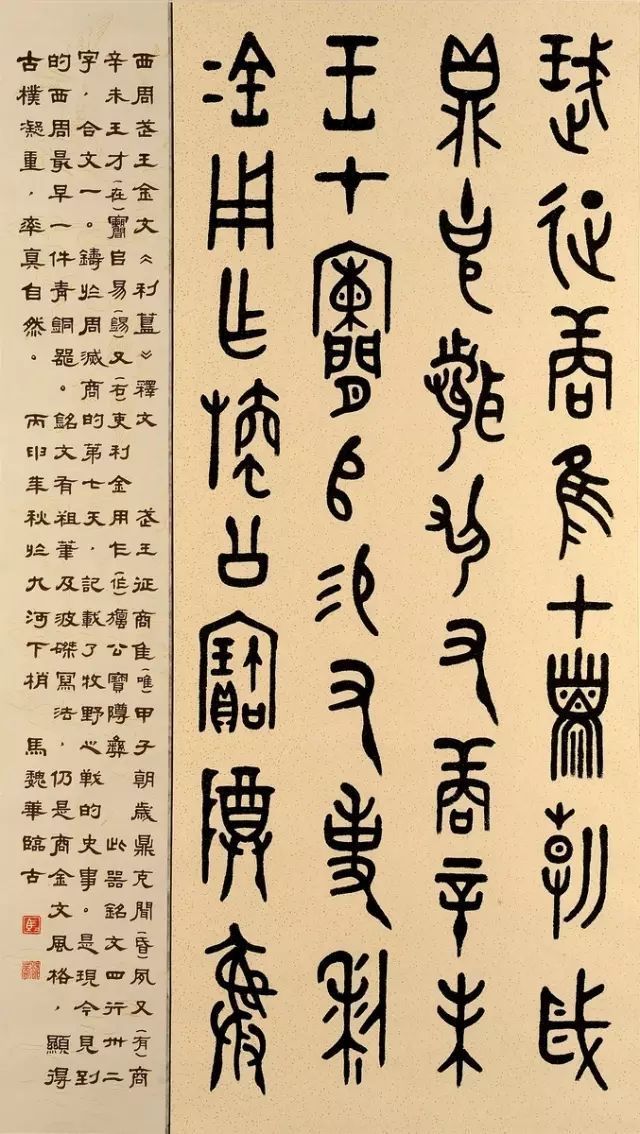 珷征商隹甲子朝歲
鼎克聞夙又商辛未
王才𤔲𠂤易又吏利
金用乍旜公寶尊彝
西周武王金文《利簋》釋文 武王征商隹(唯)甲子朝歲鼎克聞(昏)夙又(有)商
辛未王才(在)𠂤易(錫)又(右)吏利金用乍(作)旜公寶尊彝 此器銘文四行卅二
字，合文一。鑄於周滅商的第七天，記載了牧野之戰的史事。是現今見到
的西周最早一件青銅器。銘文有祖筆及波磔寫法，仍是商金文風格，顯得
古樸凝重，率真自然。 丙申年秋於九河下梢 馬魏華臨古